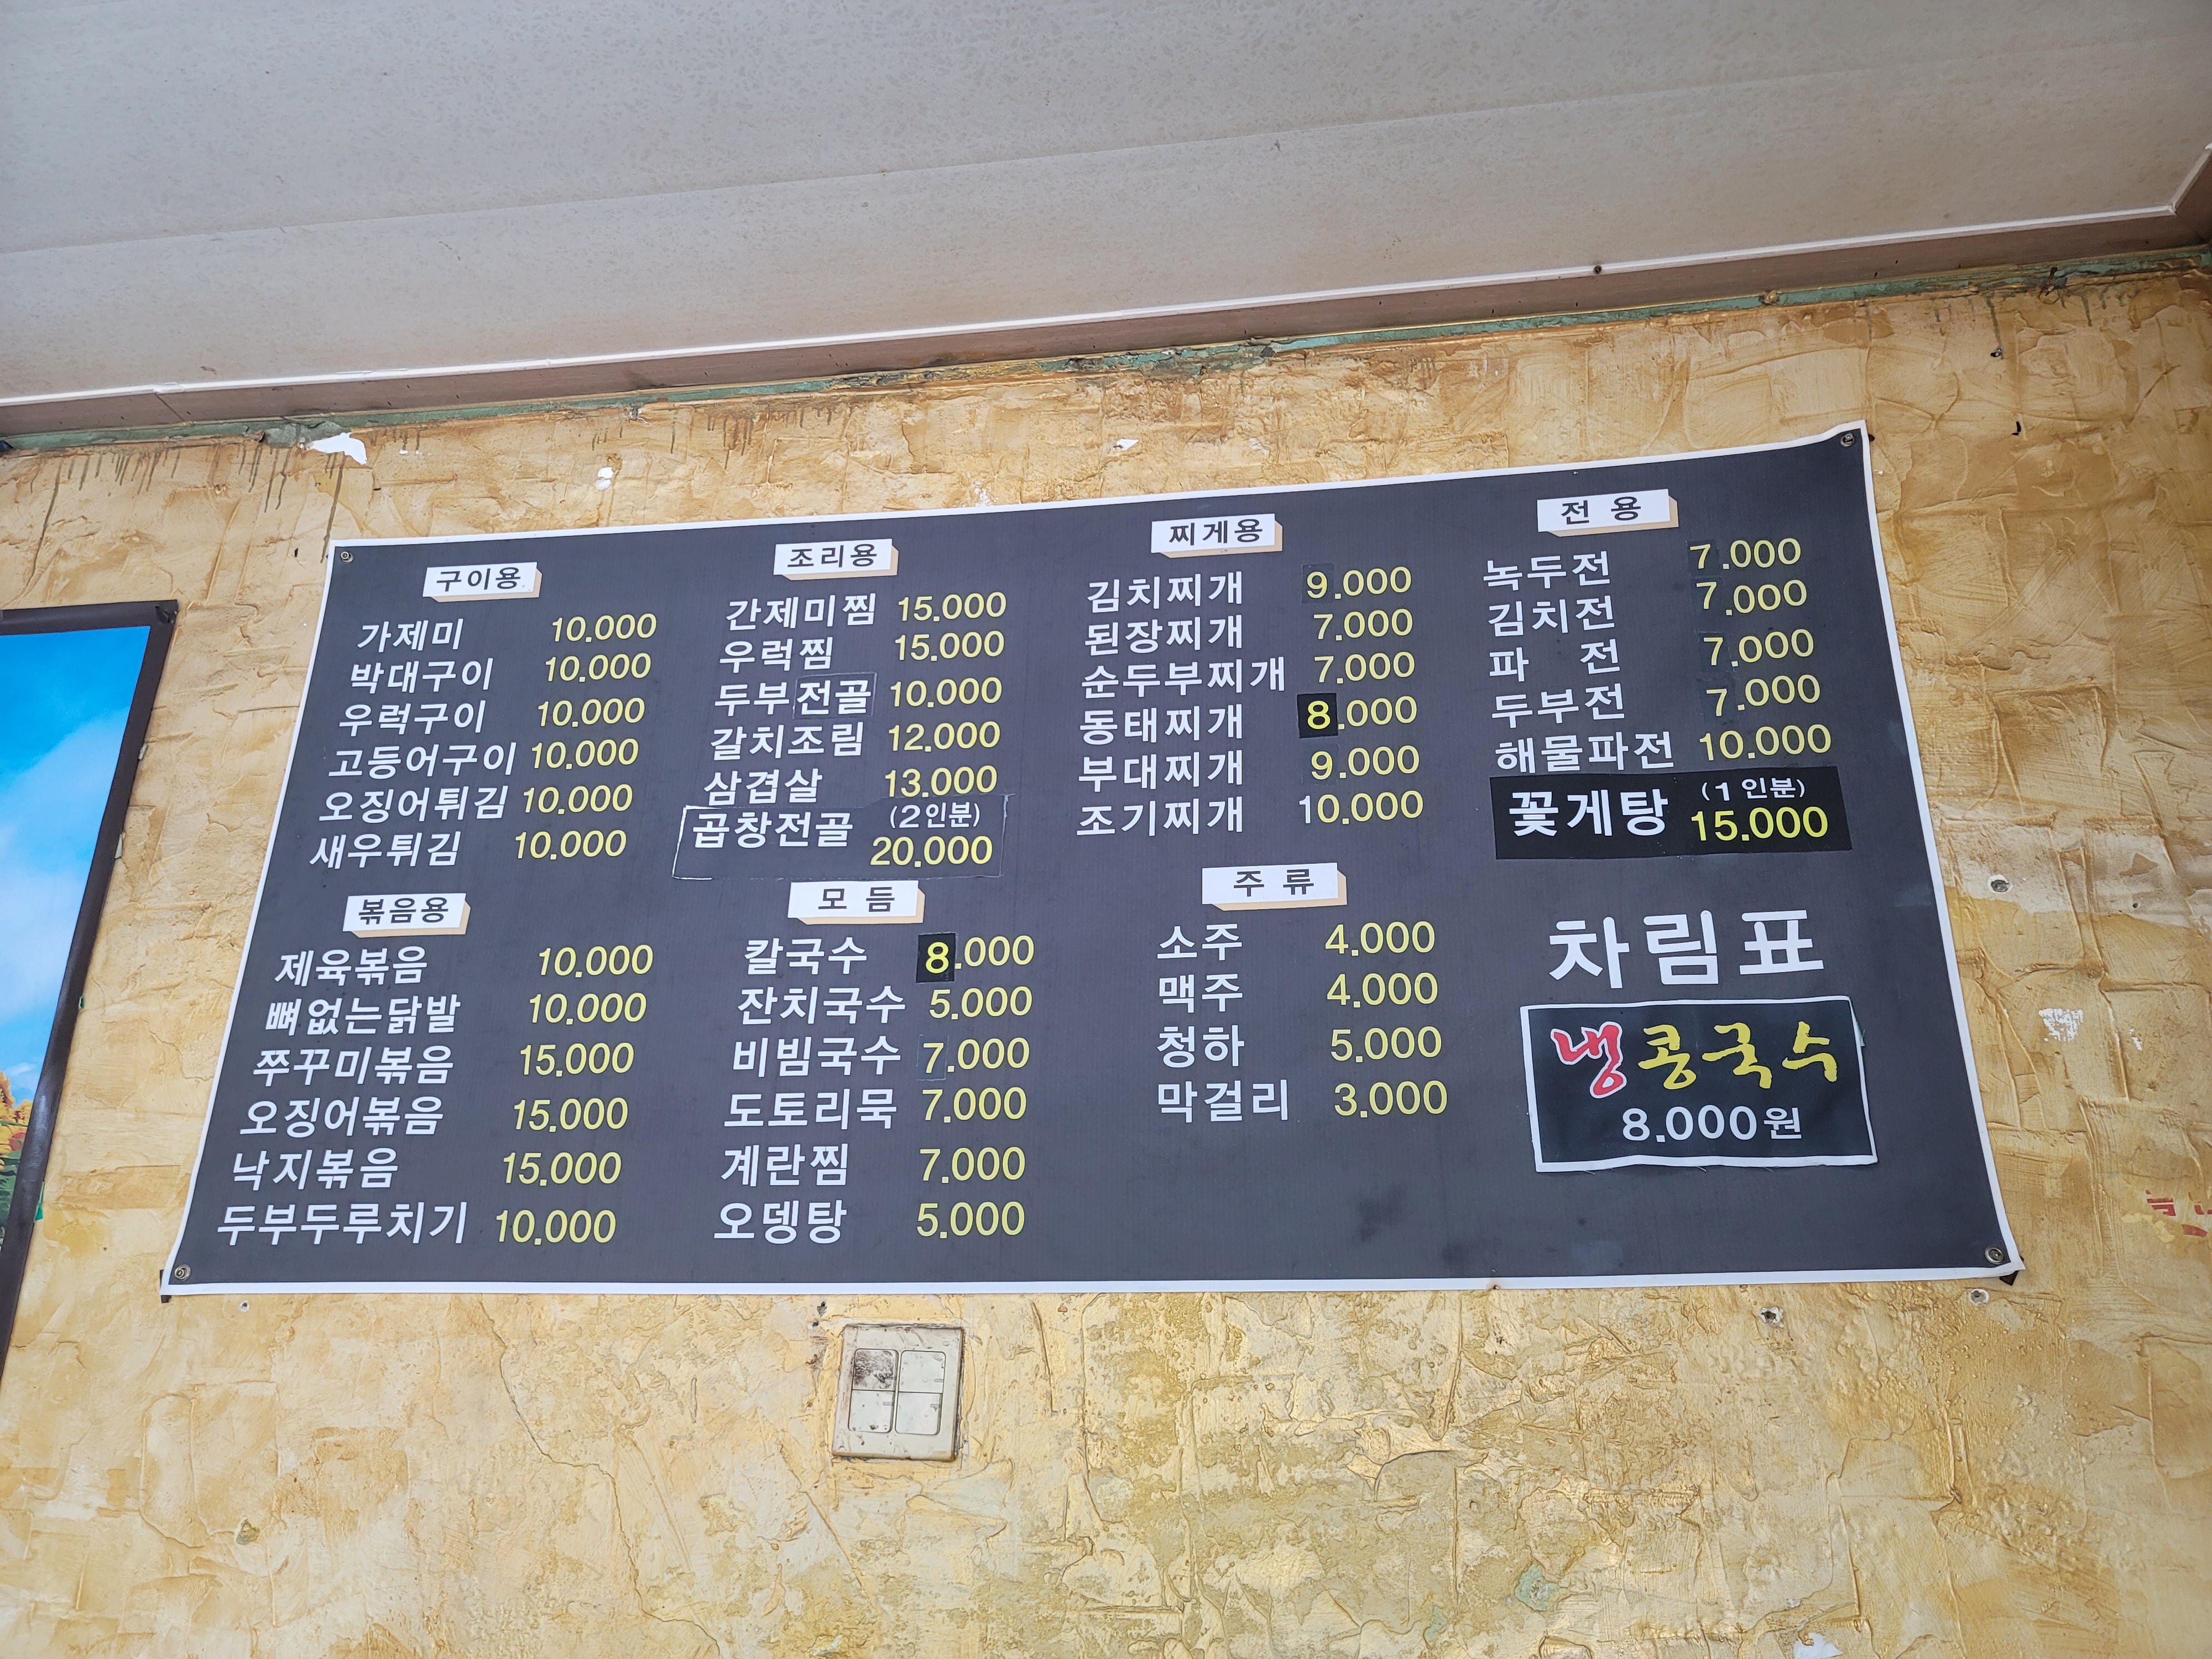 구이용
가제미 10.000
박대구이 10.000
우럭구이 10.000
고등어구이 10.000
오징어튀김 10.000
새우튀김 10.000
조리용
간제미찜 15.000
우럭찜 15.000
두부전골 10.000
갈치조림 12.000
삼겹살 13.000
곱창전골 (2인분)
20.000
찌게용
김치찌개 9.000
된장찌개 7.000
순두부찌개 7.000
동태찌개 8.000
부대찌개 9.000
조기찌개 10.000
전 용
녹두전 7.000
김치전 7.000
파 전 7.000
두부전 7.000
해물파전 10.000
꽃게탕 (1인분)
15.000
볶음용
제육볶음 10.000
뼈없는닭발 10.000
쭈꾸미볶음 15.000
오징어볶음 15.000
낙지볶음 15.000
두부두루치기 10.000
모 듬
칼국수 8.000
잔치국수 5.000
비빔국수 7.000
도토리묵 7.000
계란찜 7.000
오뎅탕 5.000
주 류
소주 4.000
맥주 4.000
청하 5.000
막걸리 3.000
차림표
냉콩국수
8.000원